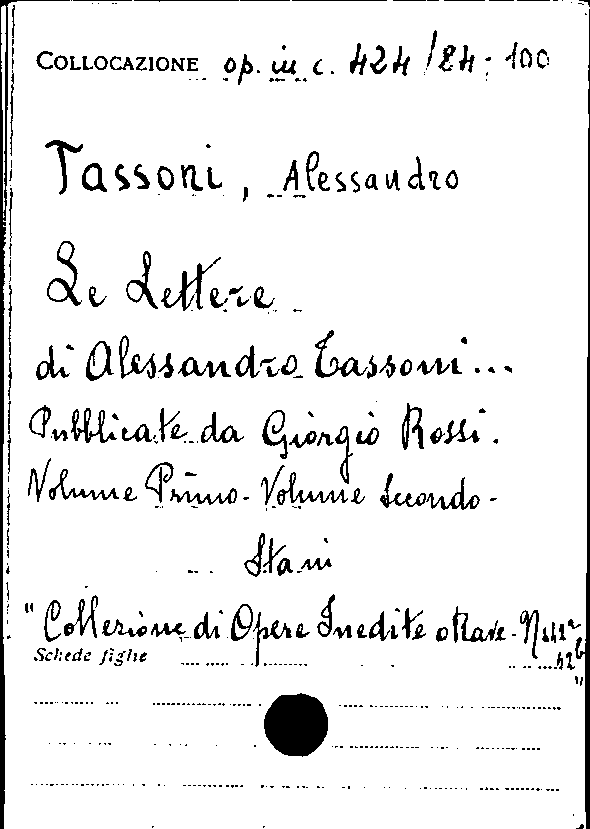 COLLOCAZIONE op. in c. 424/84; 100
Tassoni, Alessandro
Le Lettere
di Alessandro Tassoni...
Pubblicate da Giorgio Rossi.
Volume Primo - Volume Secondo -
"Collezione di Opere Inedite o Rare -
Schede figlie